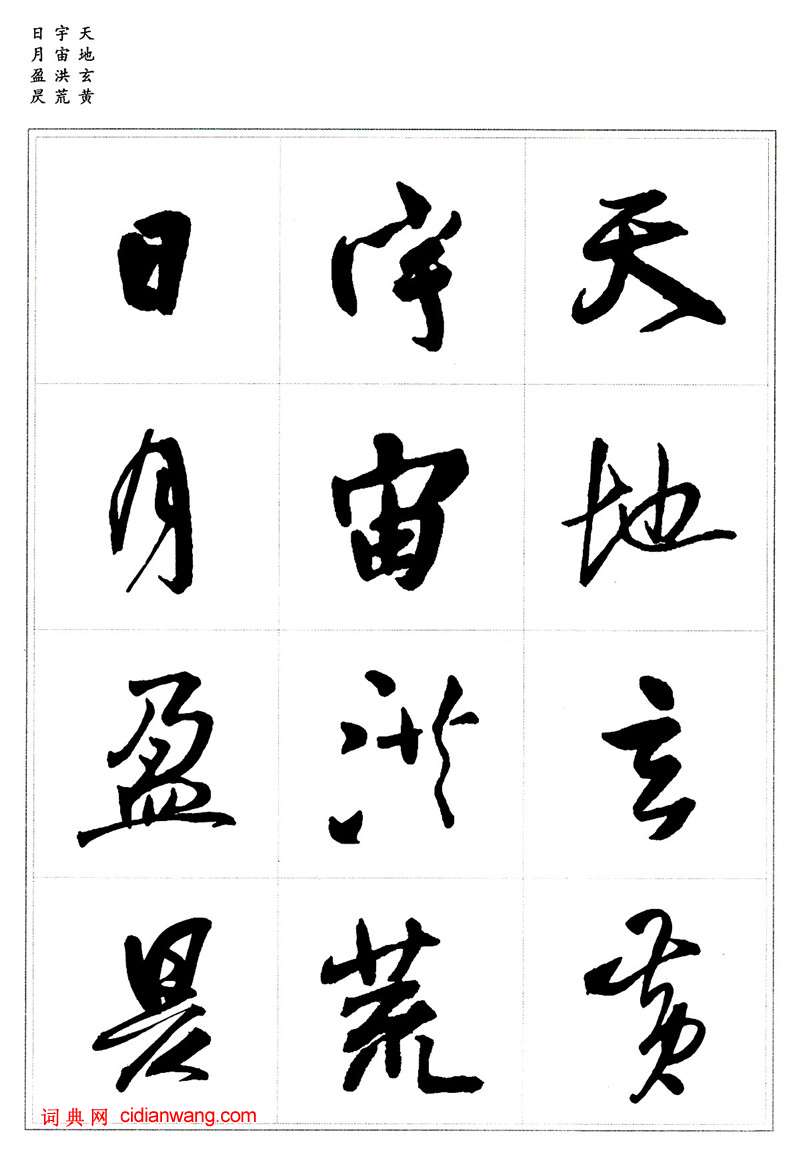 天地玄黄
宇宙洪荒
日月盈昃
天地玄黄
宇宙洪荒
日月盈昃
词典网 cidianwang.com